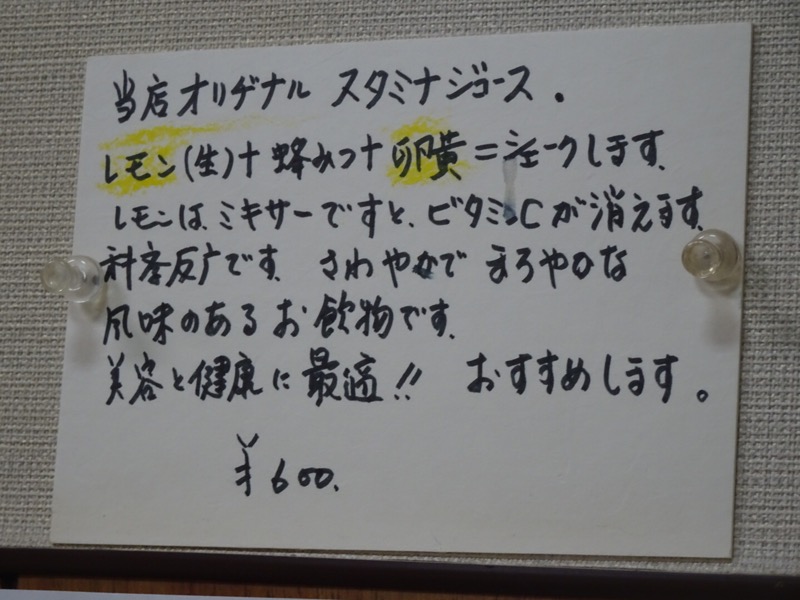 当店オリヂナル スタミナジュース.
レモン(生)+蜂みつ+卵黄=シェークします.
レモンは、ミキサーですと、ビタミンCが消えます.
です. さわやかで まろやかな
風味のあるお飲物です.
美容と健康に最適!! おすすめします。
¥600.